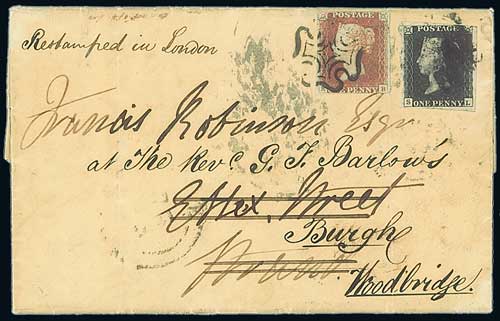 Restamped in London
POSTAGE
PENNY B
POSTAGE
S ONE PENNY L
Francis Robinson Esqr
at The Revd G. F. Barlow's
Essex Street
Burgh
Strand
Woodbridge.